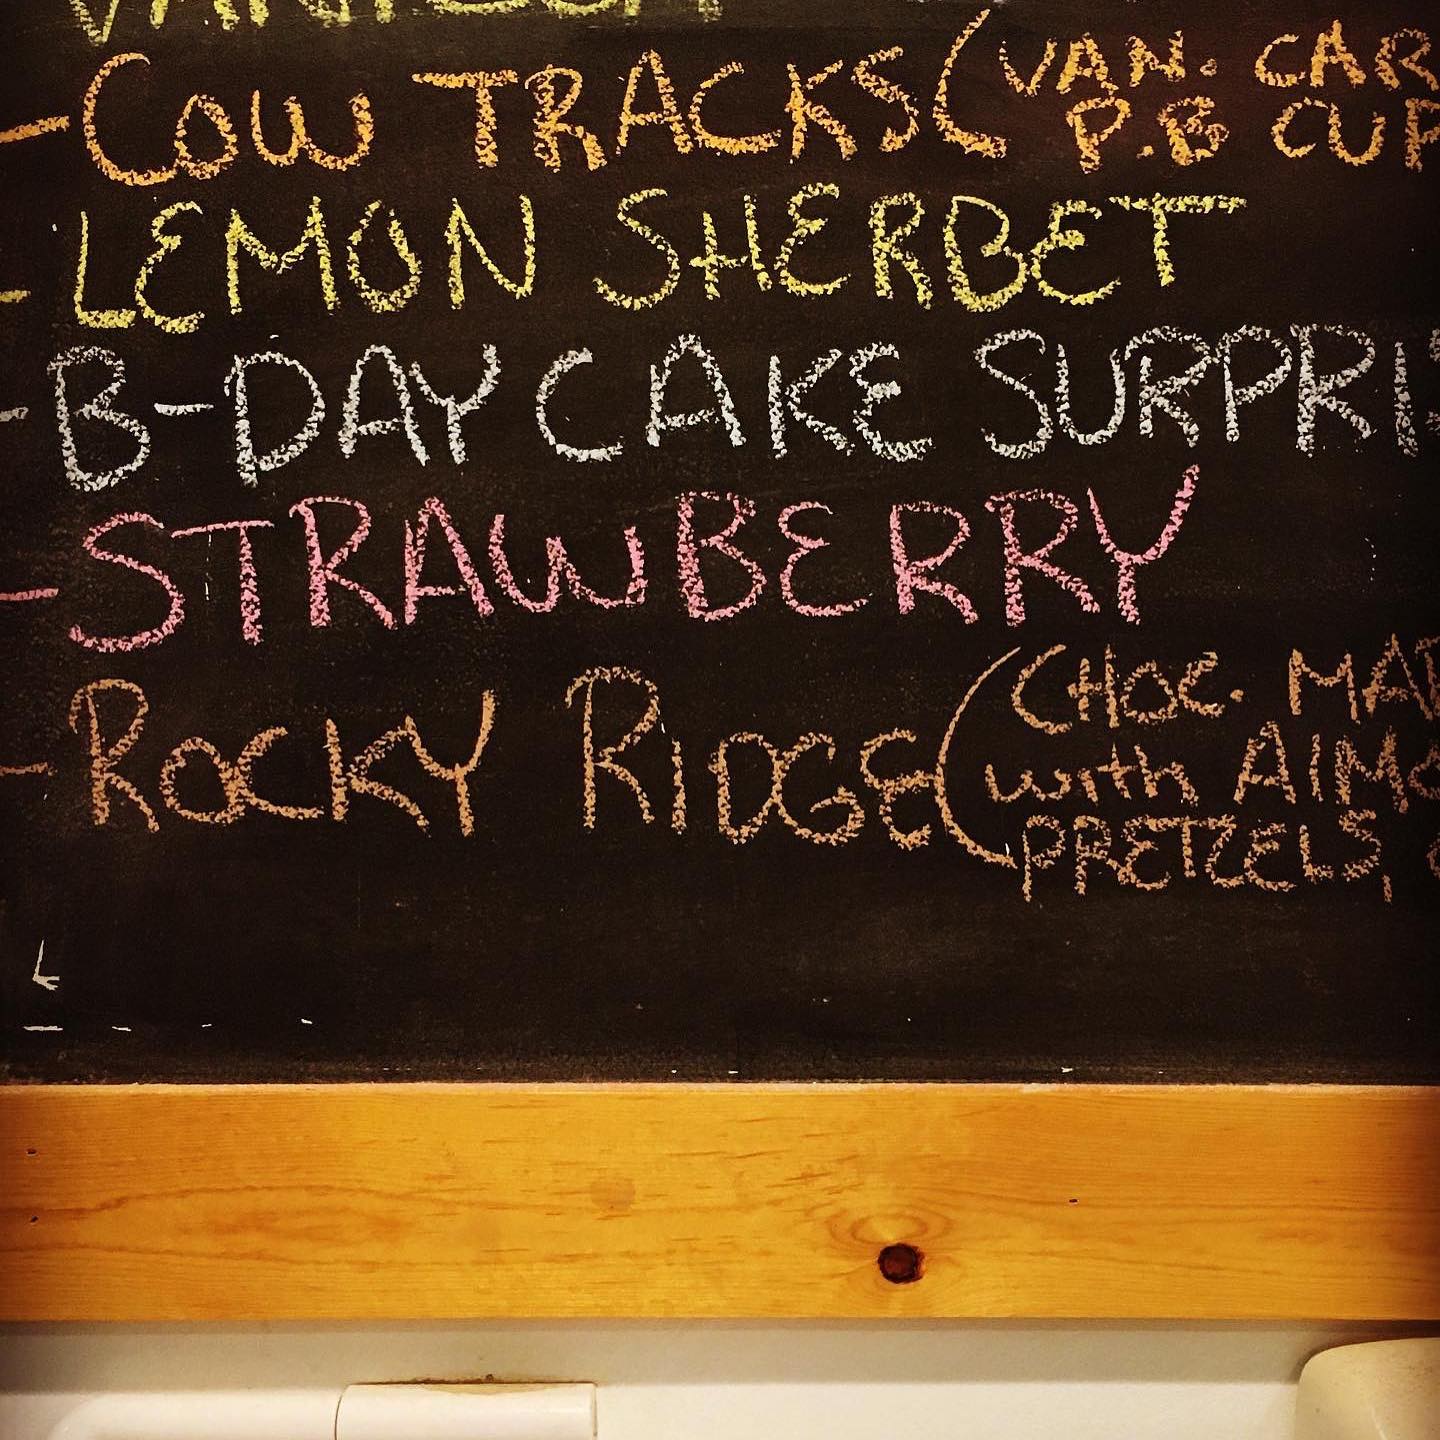 - COW TRACKS (VAN. CAR
P.B CUP
- LEMON SHERBET
- B-DAY CAKE SURPRI
- STRAWBERRY
- ROCKY RIDGE (CHOC. MA
with AlM
PRETZELS,